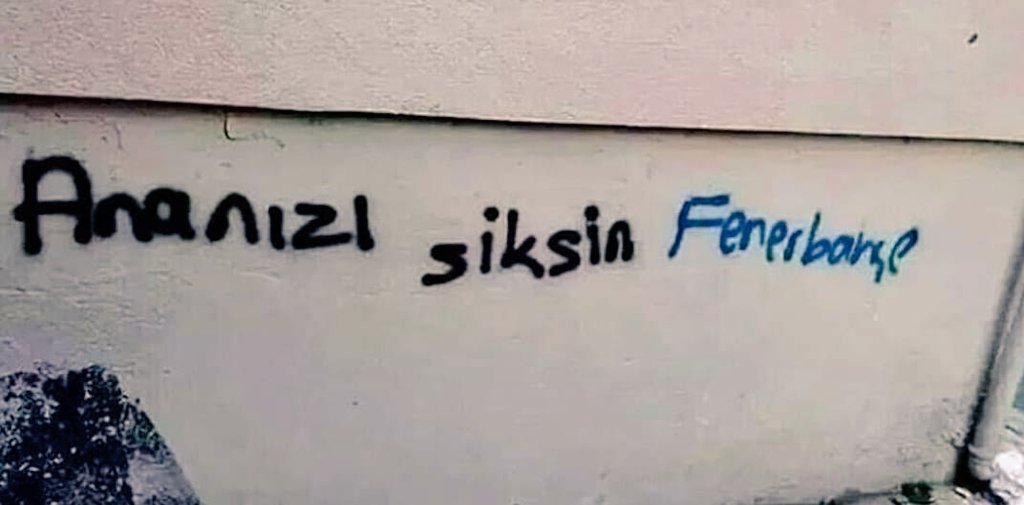 Ananızı siksin Fenerbahçe